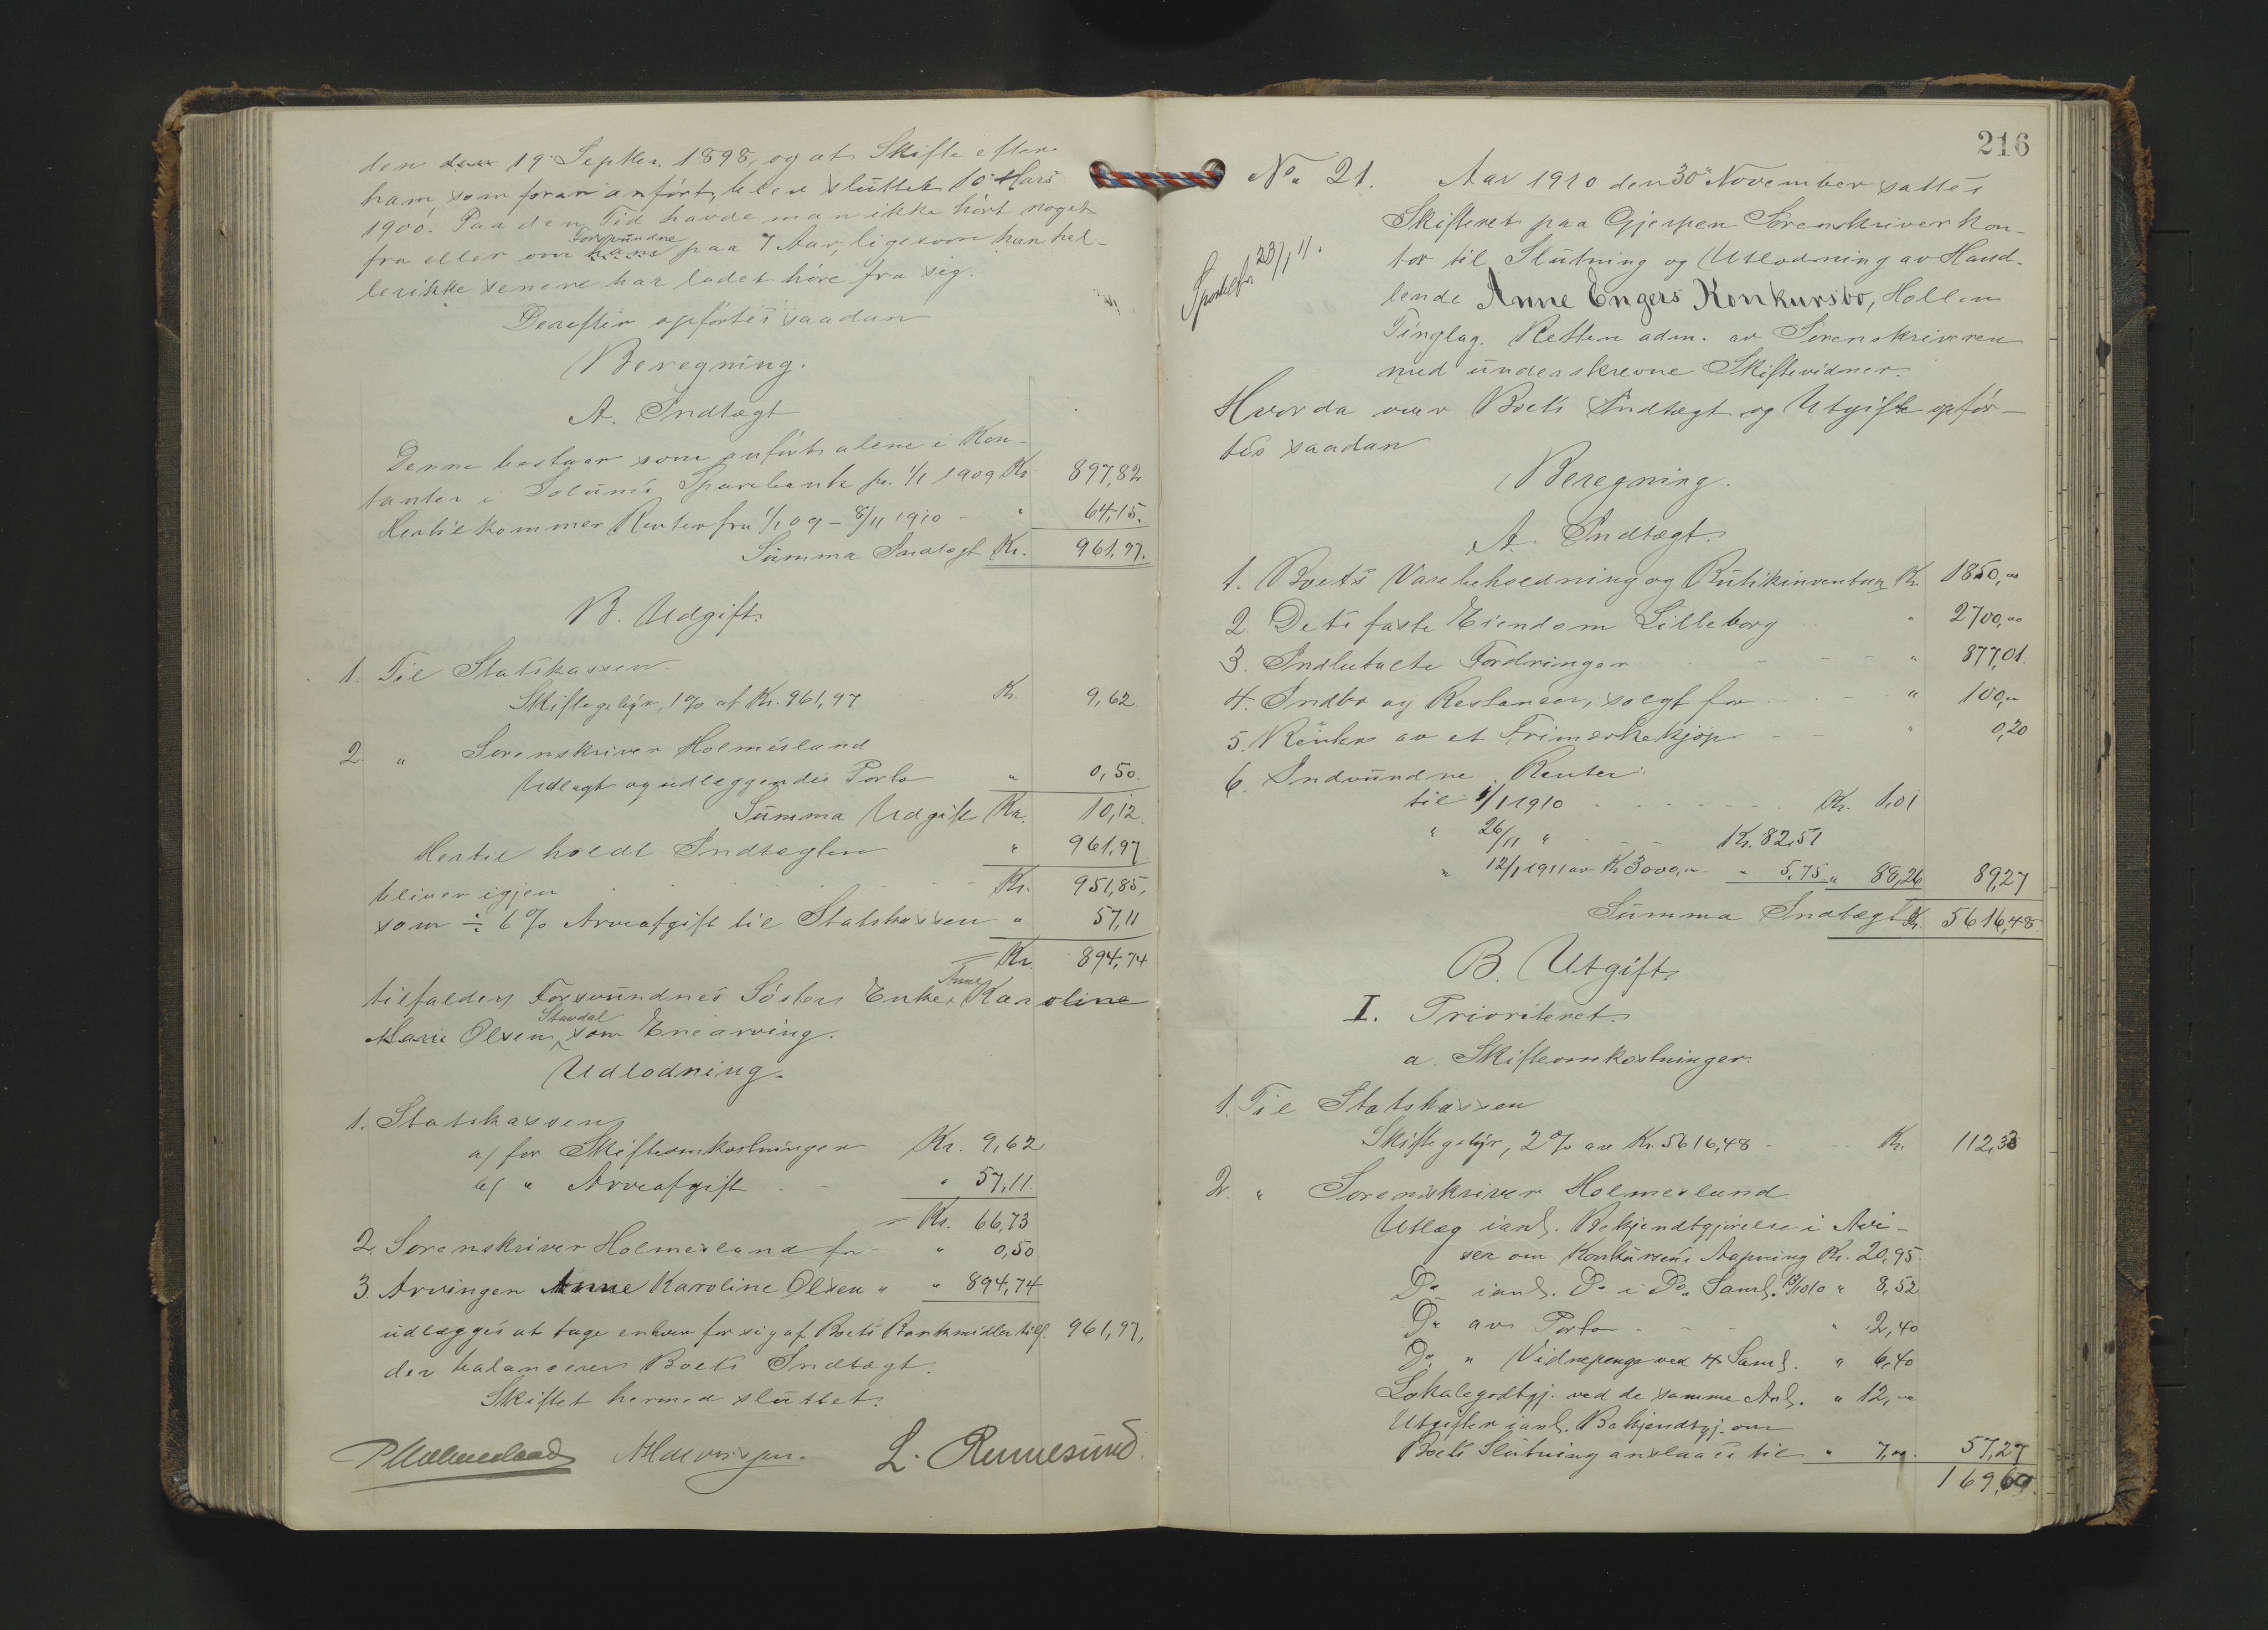 den den 19. Septbr. 1898, og at Skifte efter
ham som foran anført, blev sluttet 10. Mars
1900. Paa den Tid havde man ikke hørt noget
fra eller om hans Forsvundne paa 7 Aar, ligesom han hel-
ler ikke senere har ladet høre fra sig.
Derefter opførtes saadan
Beregning.
A. Indtægt
Denne bestaar som anført alene i Kon-
tanter i Solums Sparebank pr. 1/1 1909 Kr. 897,82
Hertil kommer Renter fra 1/1 09 - 8/11 1910 - " 64,15.
Summa Indtægt Kr. 961,97.
B. Udgift.
1. Til Statskassen
Skiftegebyr, 1% af Kr. 961,97 Kr. 9,62
2. " Sorenskriver Holmesland
Udlagt og udlæggendes Porto " 0,50.
Summa Udgift Kr. 10,12
Hertil holdt Indtægten " 961,97
bliver igjen Kr. 951,85,
som ÷ 6% Arveafgift til Statskassen " 57,11
= Kr. 894,74
tilfalder Forsvundnes Søster Enke Anne Karoline
Marie Olsen Stavdal som Enearving.
Udlodning.
1. Statskassen
a/ for Skifteomkostninger Kr. 9,62
b/ " Arveafgift - - " 57,11.
= Kr. 66,73
2. Sorenskriver Holmesland for " 0,50
3. Arvingen Anne Karoline Olsen " " 894,74
udlægges at tage enhver for sig af Boets Bankmidler tils. 961,97,
der balancerer Boets Indtægt.
Skiftet hermed sluttet.
PHolmesland L. Rennesund.
216
No. 21. Aar 1910 den 30' November sattes
Skifteret paa Gjerpen Sorenskriverkon-
23/1 11.
tor til Slutning og Utlodning av Hand-
lende Anne Engers Konkursbo, Hollen
Tinglag. Retten adm. av Sorenskriveren
med underskrevne Skiftevidner.
Hvorda over Boets Indtægt og Utgift opfør-
tes saadan
Beregning.
A. Indtægt.
1. Boets Varebeholdning og Butikinventar Kr. 1850,00
2. Dets faste Eiendom Lilleborg " 2700,00
3. Indbetalte Fordringer - - - " 877,01.
4. Indbo og Restancer, solgt for - - " 100,00
5. Renter av et Frimærkekjøp - - " 0,20
6. Indvundne Renter:
til 1/1 1910 Kr. 1,01
" 26/11 " - - Kr. 82,51
" 12/1 1911 av Kr. 3000,00 - " 5,75 " 88,26 89,27
Summa Indtægt Kr. 5616,48.
B. Utgift.
I. Prioritet.
a. Skifteomkostninger.
1. Til Statskassen
Skiftegebyr, 2% av Kr. 5616,48 - Kr. 112,33
2. " Sorenskriver Holmesland.
Utlæg i anl. Bekjendtgjørelse i Avi-
ser om Konkursens Aapning Kr. 20,95.
Do i anl. Do i Do. Saml. 13/10 10 " 8,52
Do av Porto - - - " 2,40
Do. " Vidnepenge ved 4 Saml. " 6,40
Lokalegodtgj. ved de samme Anl. " 12,00
Utgifter i anl. Bekjendtgj. om
Boets Slutning anslaaes til " 7,00. 57,27
169,60.